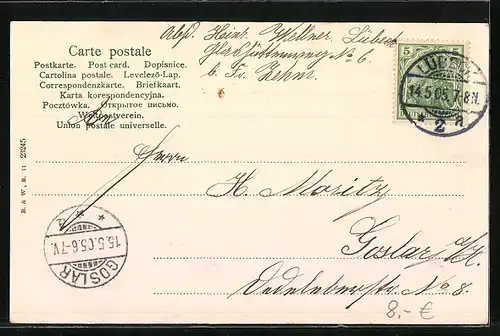 Carte postale
Postkarte. Post card. Dopisnice.
Cartolina postale. Levelező-Lap.
Correspondenzkarte. Briefkaart.
Karta korespondencyjna.
Pocztówka. Открытое письмо.
Weltpostverein.
Union postale universelle.
Abs. Heinr. Wellner, Lübeck
No 6
b. Fr.
5 5
LÜBECK
14.5.05.7-8N.
* 2 a
An
Herrn
H. Moritz
Goslar a/H.
No 8.
15.5.05.6-7V.
GOSLAR
B. & W., B. 11 23245
8.- €